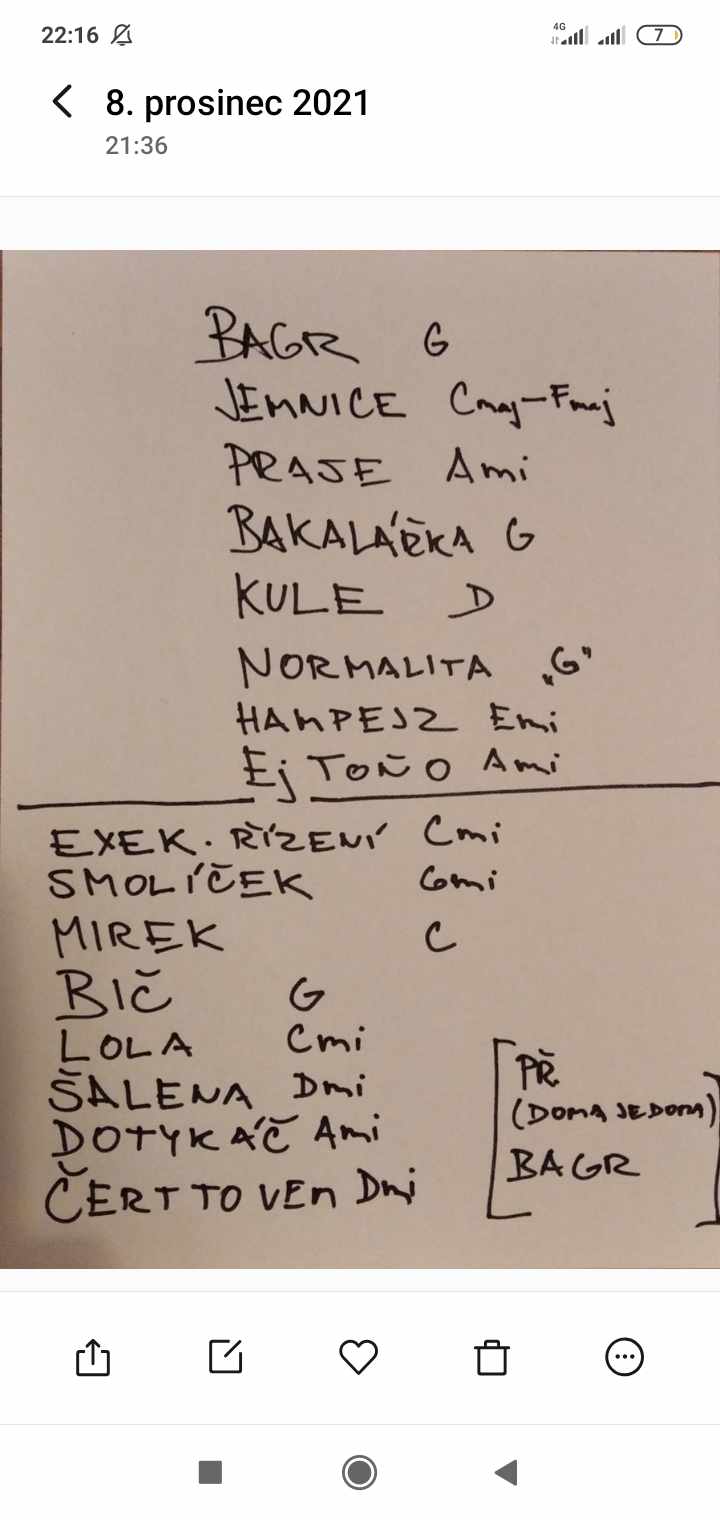 22:16 4G 7
8. prosinec 2021
21:36
BAGR G
JEMNICE Cmaj-Fmaj
PRASE Ami
BAKALÁŘKA G
KULE D
NORMALITA „G"
HAMPEJZ Emi
Ej TOŇO Ami
EXEK. ŘÍZENÍ Cmi
SMOLÍČEK Gmi
MIREK C
BIČ G
LOLA Cmi
ŠALENA Dmi
DOTYKÁČ Ami
ČERT TO VEM Dmi
PŘ
(DOMA JE DOMA)
BAGR